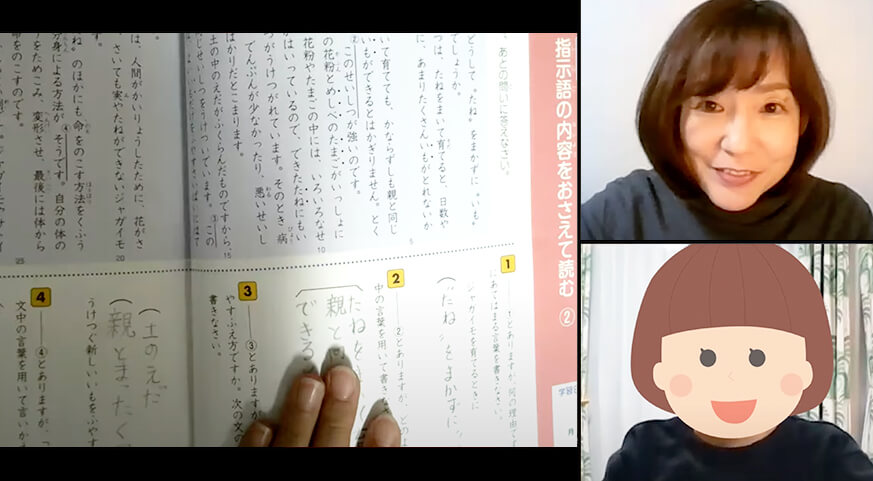 指示語の内容をおさえて読む ②
学習日
月
、あとの問いに答えなさい。
どうして〝たね〟をまかずに、〝いも〟
でしょうか。
つは、たねをまいて育てると、日数や
に、あまりたくさんいもがとれないか
5
いて育てても、かならずしも親と同じ
いもができるとはかぎりません。とく
②このせいしつが強いのです。
の花粉とめしべのたまごがいっしょに
花粉やたまごの中には、いろいろなせ
10
がはいっているので、できたたねにもい
つがうけつがれています。そのとき病
でんぷんが少なかったり、悪いせいし
ばかりだとこまります。
土の中のえだがふくらんだものですから、
15
じせいしつをうけついでいます。③この
は、人間がかいりょうしたために、花がさ
さいても実やたねができないジャガイモ
20
ます。
ね〟のほかにも命をのこす方法をくふう
④そうです。自分の体の
身による方法が
をためこみ、変形させ、最後には体から
命をのこすのです。
25
1
①とありますが、何の理由です
ジャガイモを育てるときに
にあてはまる言葉を書きなさい。
〝たね〟をまかずに
2
②とありますが、どのよ
中の言葉を用いて書きな
たねを
親と
できる
3
③とありますが
やすふえ方ですか。次の文の
書きなさい。
土のえだ
親とまったく
うけつぐ新しいいもをふやす
4
④とありますが、「
文中の言葉を用いて言いか